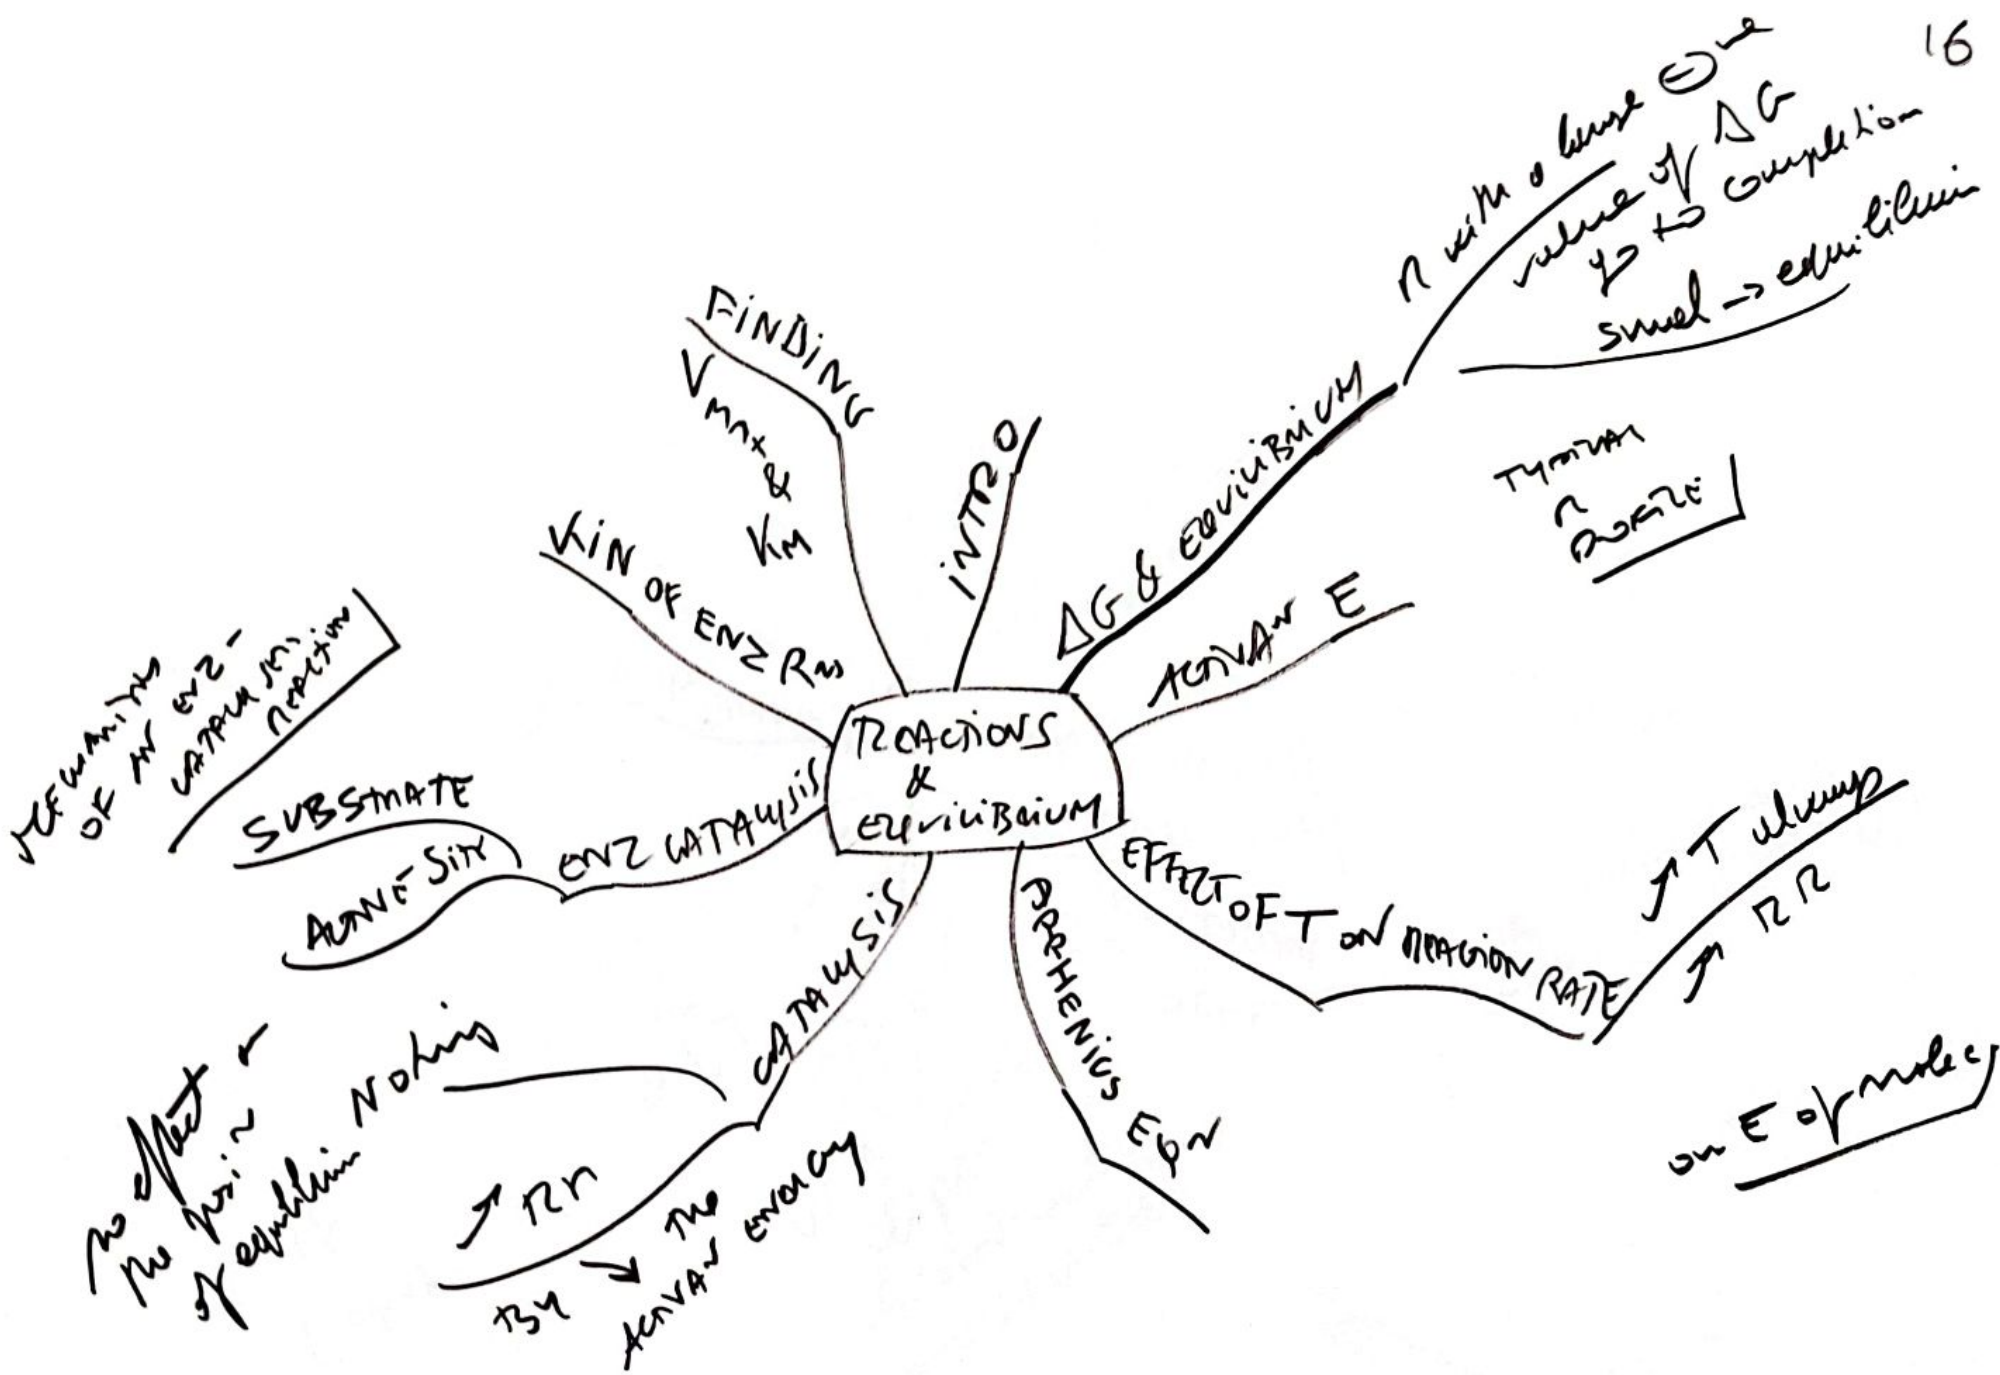 16
REACTIONS
&
EQUILIBRIUM
INTRO
ΔG & EQUILIBRIUM
R with a large ⊖ve
value of ΔG
go to completion
small → equilibrium
TYPICAL
R
PROFILE
ACTIVAN E
EFFECT OF T ON REACTION RATE
↗ T always
↗ RR
on E of molec
ARRHENIUS EQN
CATALYSIS
Nothing
no effect
the
of equilibrium
↗ RR
BY ↘ THE
ACTIVAN ENERGY
ENZ CATALYSIS
SUBSTRATE
ACTIVE SITE
OF AN ENZ-
CATALYSED
REACTION
KIN OF ENZ RNS
FINDING
VMAX
&
KM